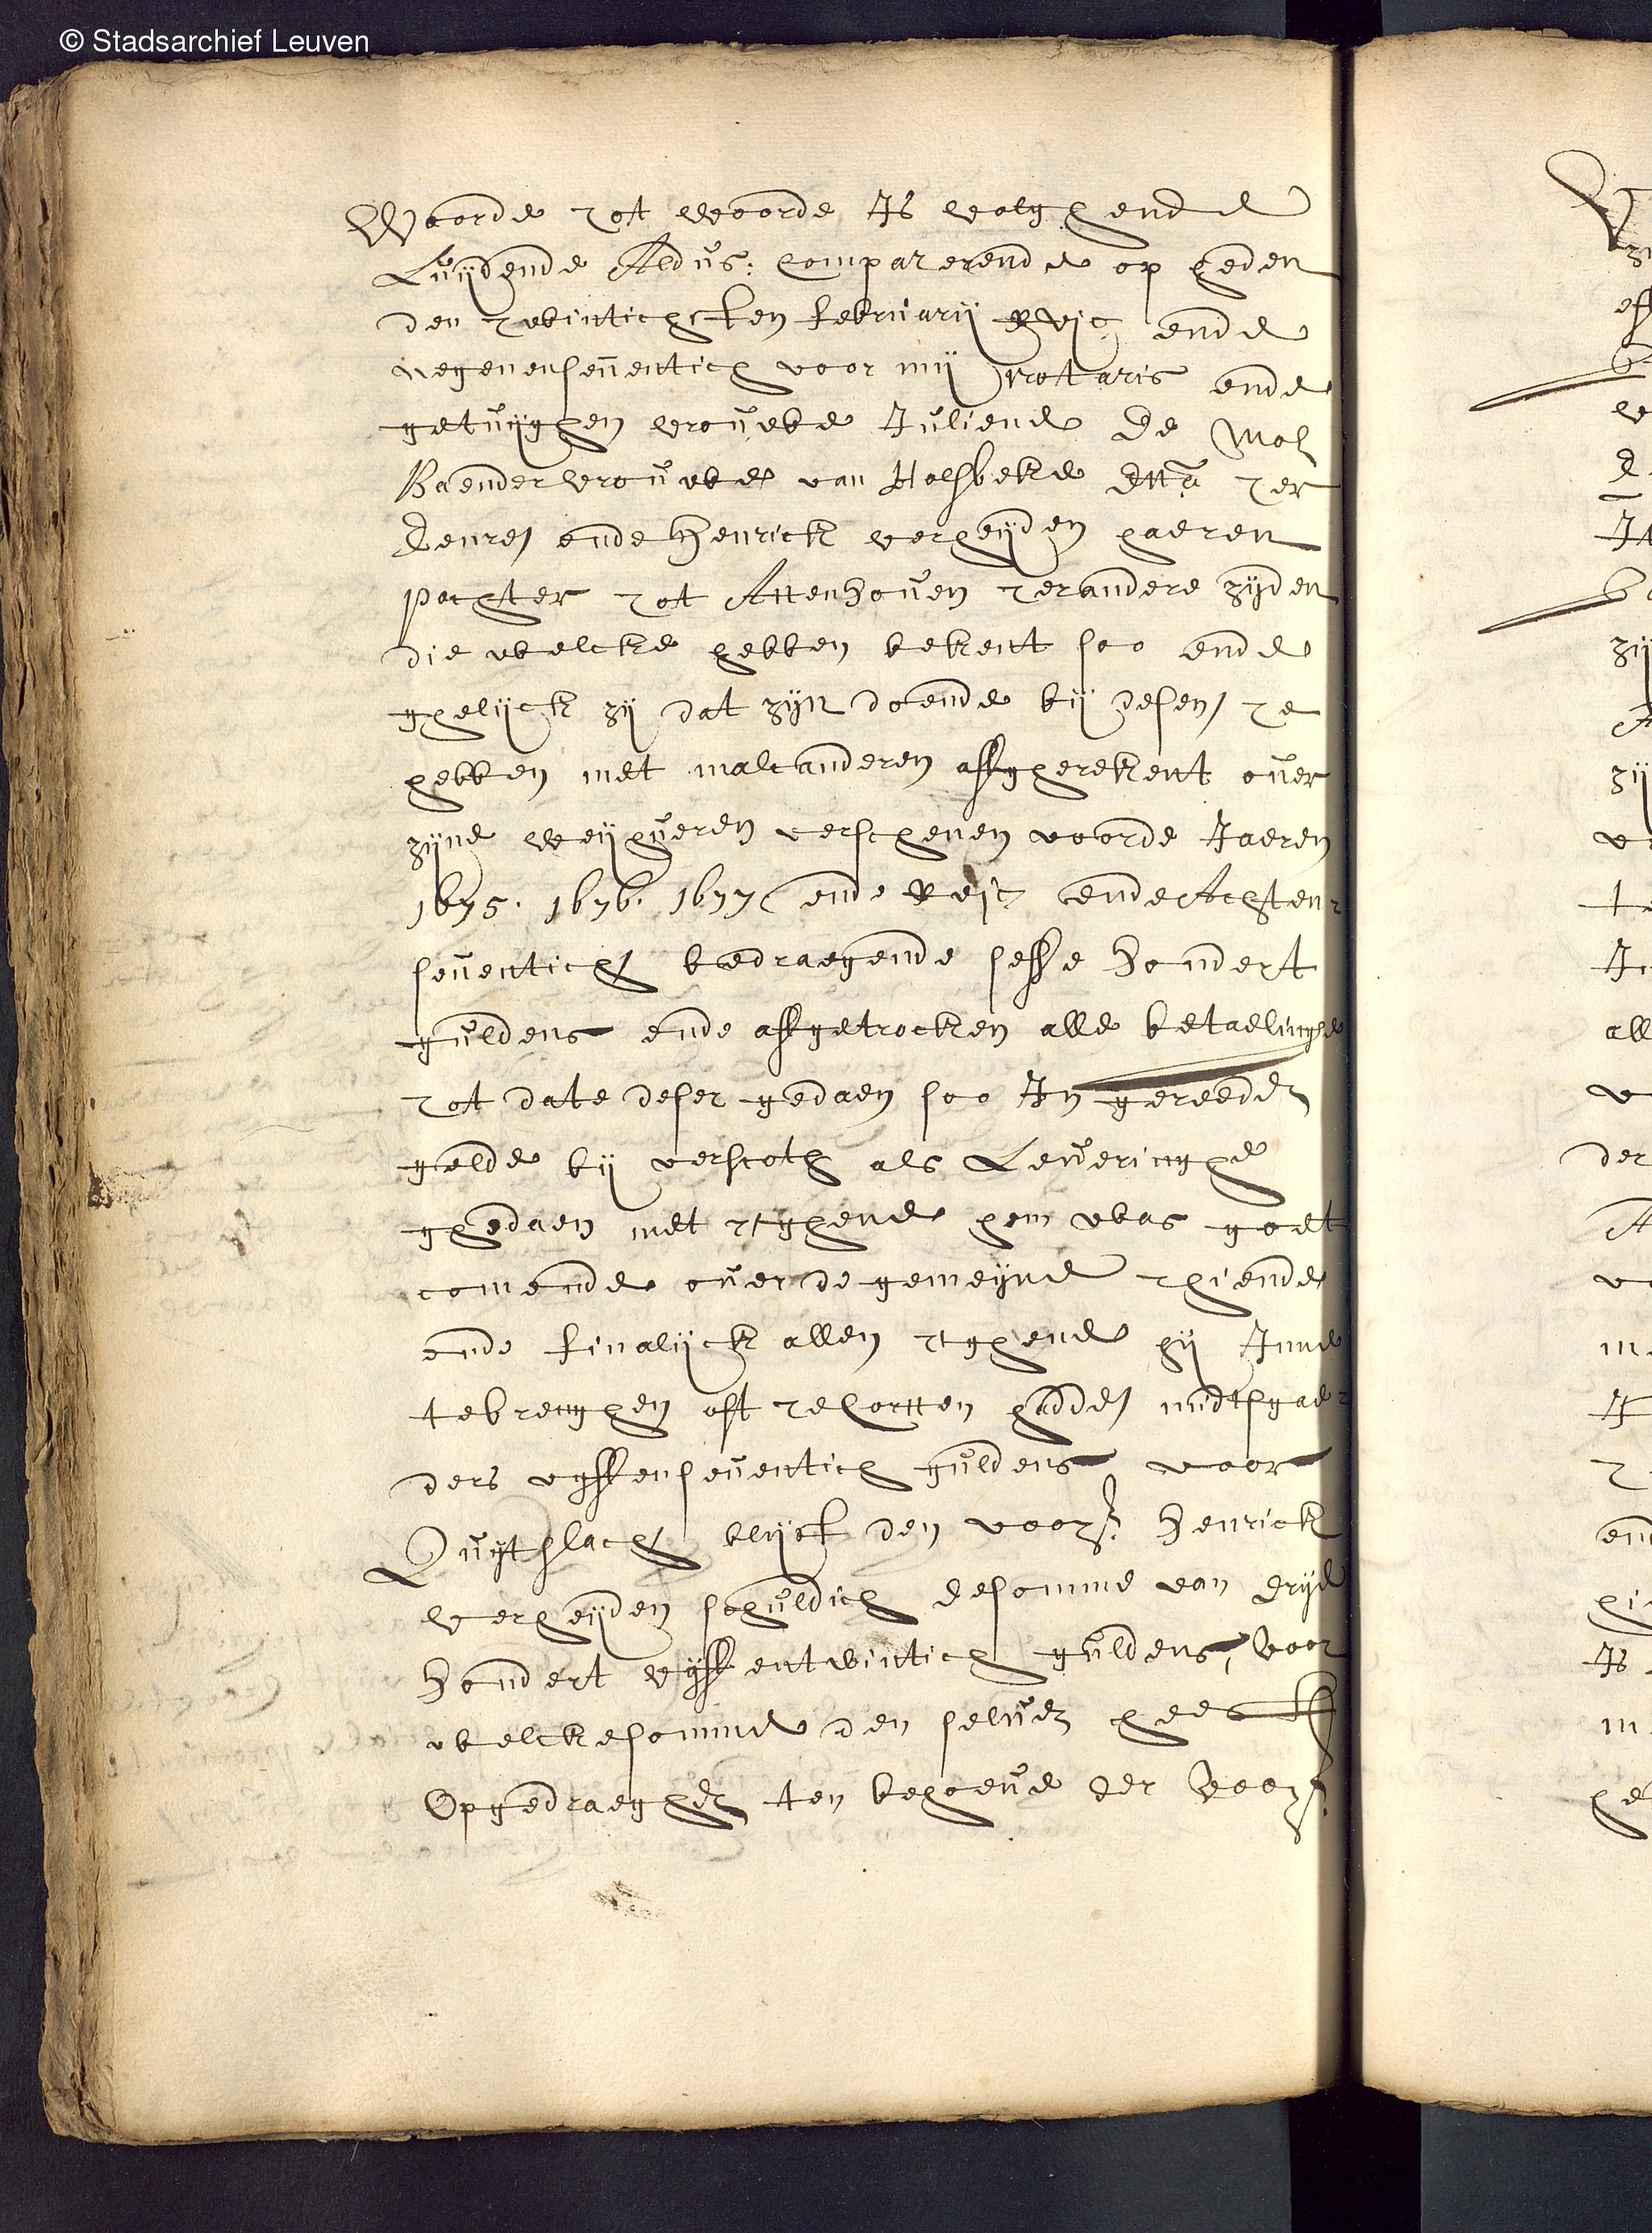 © Stadsarchief Leuven
Woorde tot woorde Is volghende
Luydende Aldus: Comparerende op heden
den twintichsten february xvjc ende
negenenseventich voor my Notaris ende
getuyghen vrouwe Juliene De Mol
Baendervrouwe van Holsbeke etta ter
eenre/ ende Henrick verheyden haeren
pachter tot Attenhoven ter andere zyden
die welcke hebben bekent soo ende
ghelyck zy dat zyn doende by desen/ te
hebben met malcanderen affgherekent over
zyne veryhueren verschenen voorde Jaeren
1675. 1676. 1677 ende xvjc ende Achten
seventich/ bedraegende sesse hondert
guldens ende affgetrocken alle betaelinghe
tot date deser gedaen soo In gereeden
gelde by verscoth als Leveringhe
ghedaen met tghene hem was goet
comende over de gemeyne thiende
ende finalyck allen tghene hy Inne
te brenghen oft te corten hadde/ midtsgae
ders vyffenseventich guldens voor
Quytslach/ blyft den voors. Henrick
verheyden schuldich de somme van drye
hondert vyffentwintich guldens, Voor
welcke somme den selven heeft
Opgedraeghen ten behoeve der Voors.